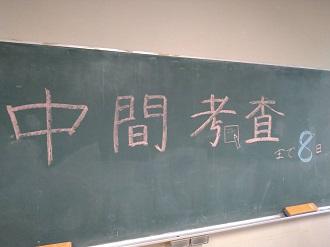 中間考査
まで8日